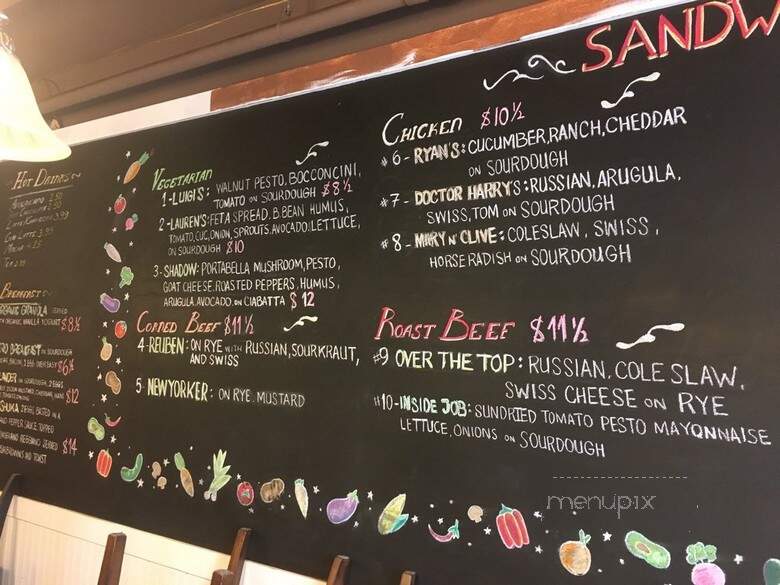 SANDW
Hot Drinks
Breakfast
$8½
$6½
$12
$14
Vegetarian
1-LUIGI'S: WALNUT PESTO, BOCCONCINI,
TOMATO ON SOURDOUGH $8½
2-LAUREN'S: FETA SPREAD, B.BEAN HUMUS,
TOMATO, CUC, ONION, SPROUTS, AVOCADO, LETTUCE,
ON SOURDOUGH $10
3-SHADOW: PORTABELLA MUSHROOM, PESTO,
GOAT CHEESE, ROASTED PEPPERS, HUMUS,
ARUGULA, AVOCADO, ON CIABATTA $12
CORNED BEEF $11½
4-REUBEN: ON RYE WITH RUSSIAN, SOURKRAUT,
AND SWISS
5-NEWYORKER: ON RYE, MUSTARD
CHICKEN $10½
#6-RYAN'S: CUCUMBER, RANCH, CHEDDAR
ON SOURDOUGH
#7-DOCTOR HARRY'S: RUSSIAN, ARUGULA,
SWISS, TOM ON SOURDOUGH
#8-MARY N' CLIVE: COLESLAW, SWISS,
HORSE RADISH ON SOURDOUGH
ROAST BEEF $11½
#9 OVER THE TOP: RUSSIAN, COLE SLAW,
SWISS CHEESE ON RYE
#10-INSIDE JOB: SUNDRIED TOMATO PESTO MAYONNAISE
LETTUCE, ONIONS ON SOURDOUGH
menupix